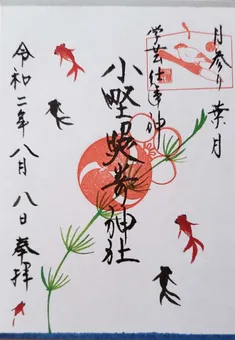 月参り 葉月
学芸仕事の神
小野照崎神社
令和二年八月八日奉拝